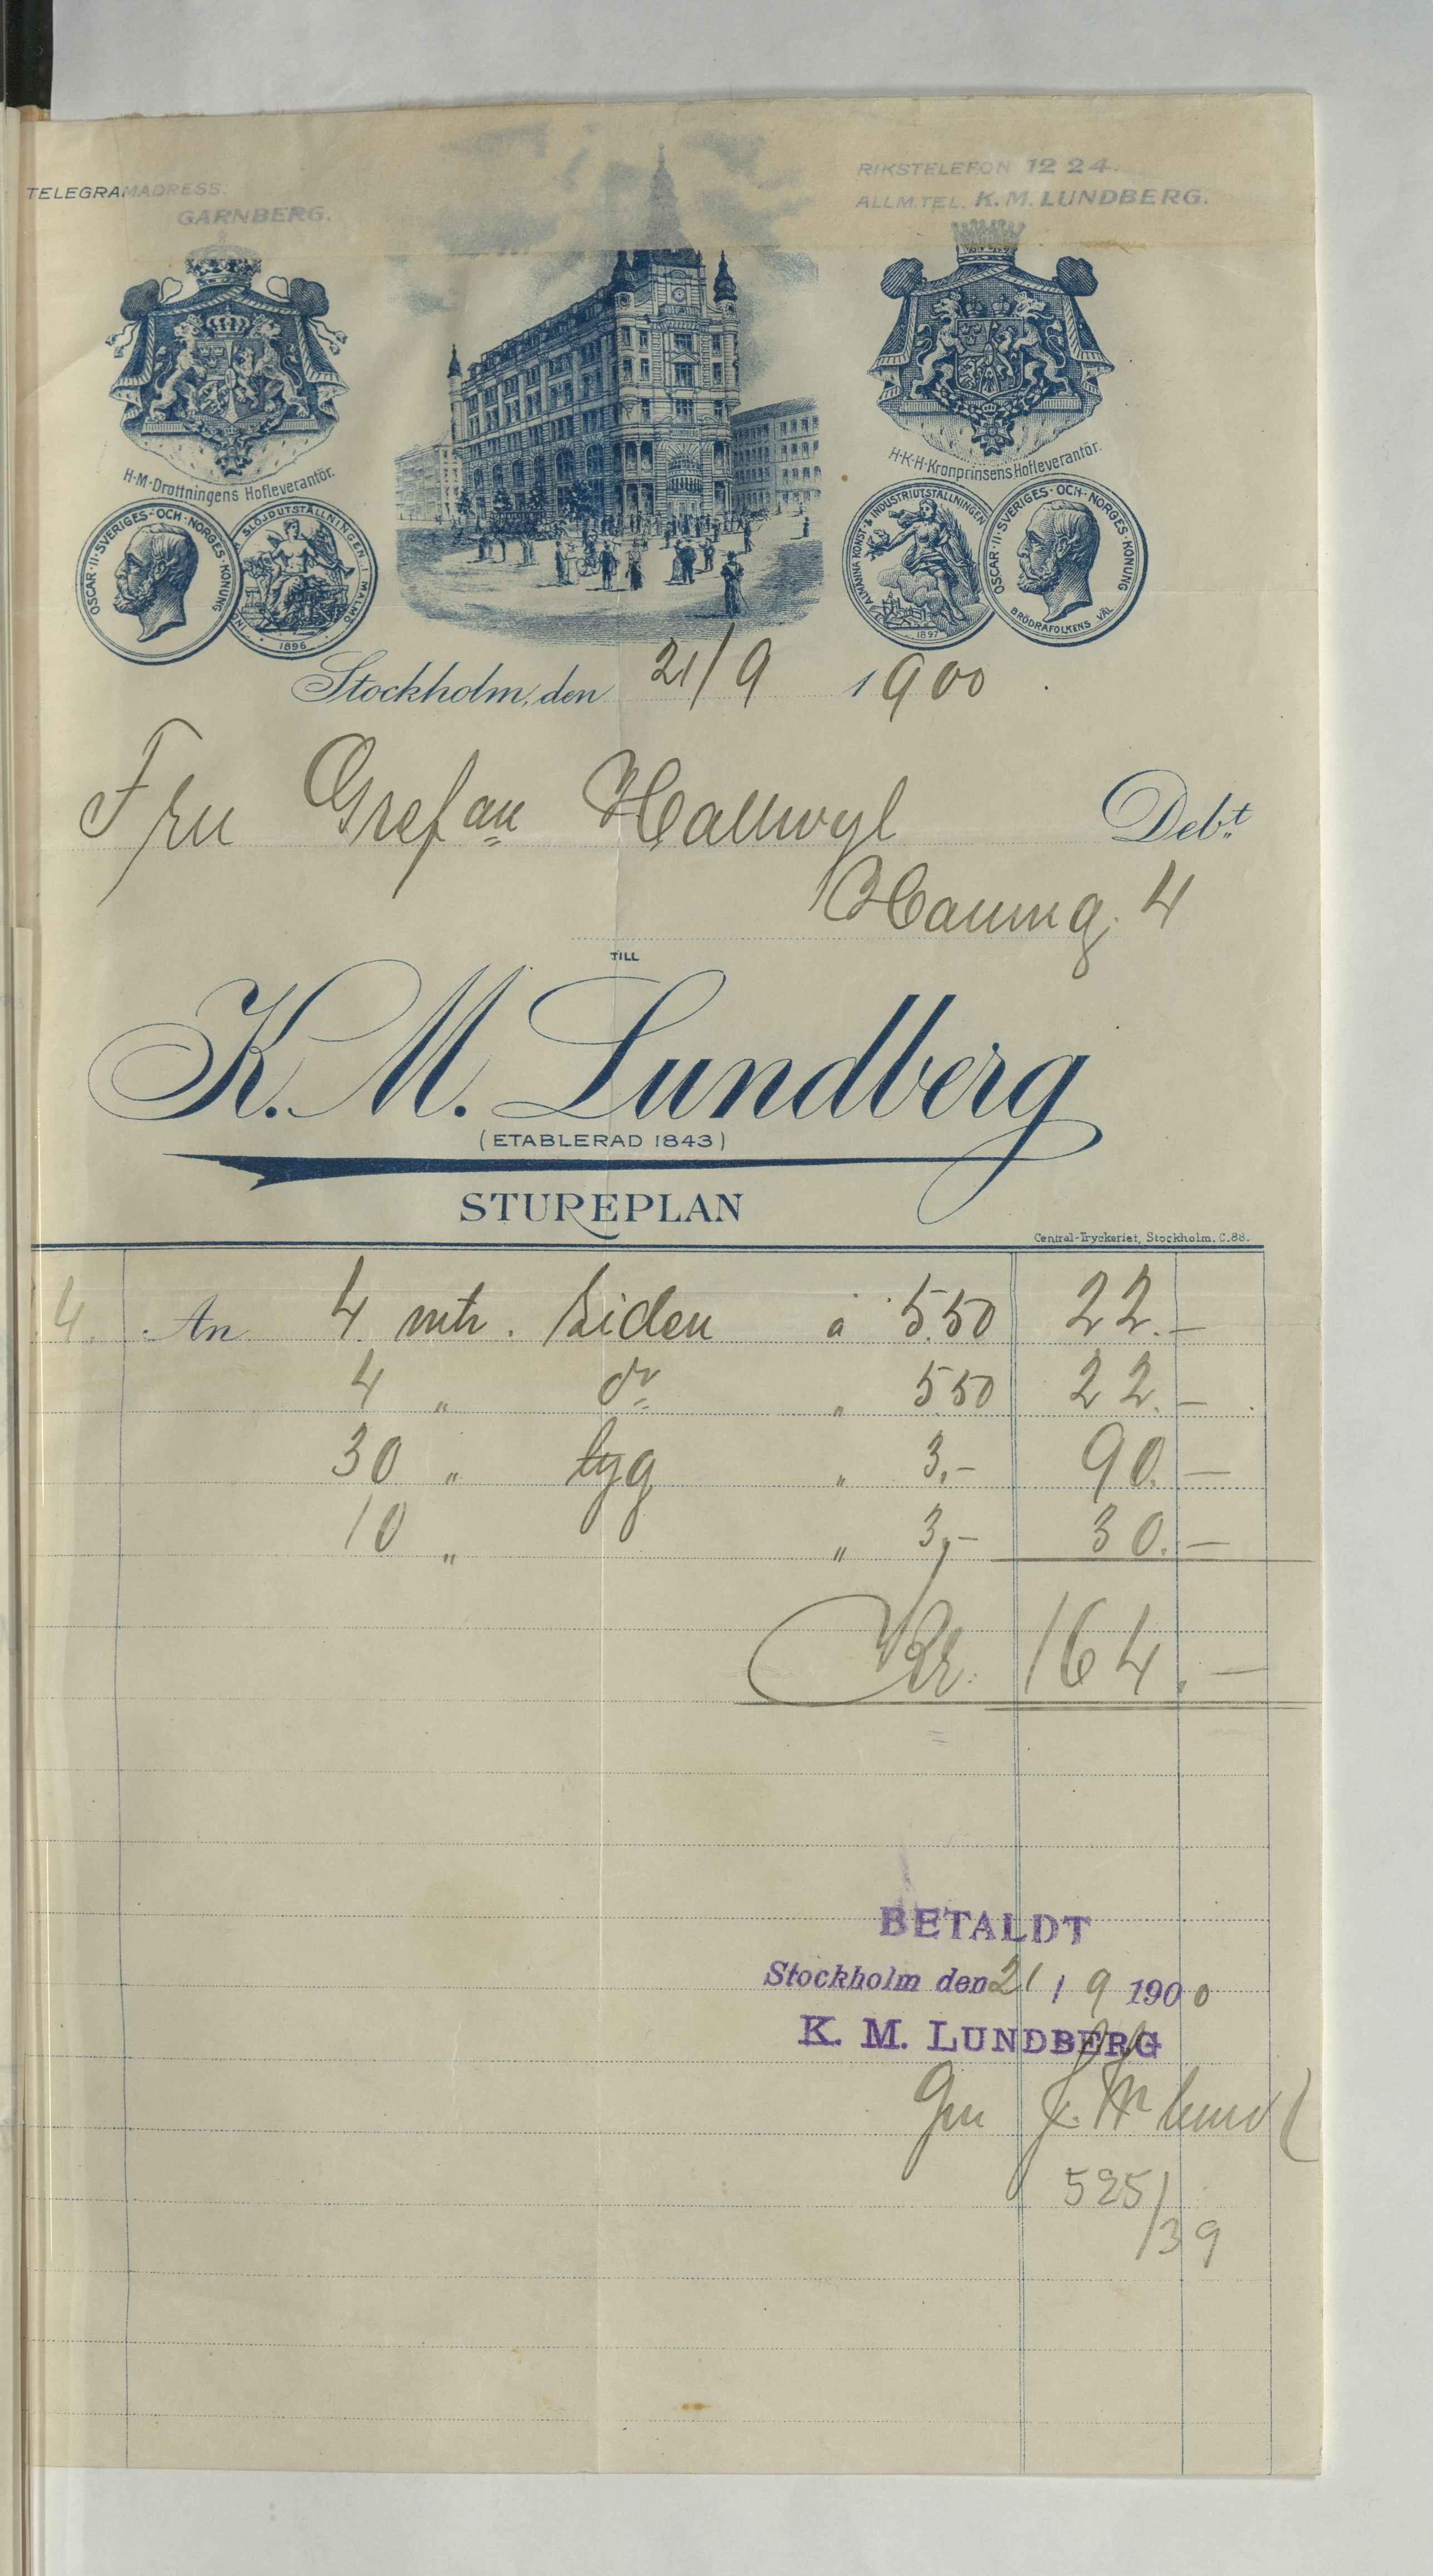 TELEGRAMADRESS:
GARNBERG.
RIKSTELEFON 12 24.
ALLM. TEL. K. M. LUNDBERG.
H·M·Drottningens Hofleverantör.
H·K·H·Kronprinsens Hofleverantör.
OSCAR·II·SVERIGES·OCH·NORGES·KONUNG
SLÖJDUTSTÄLLNINGEN I MALMÖ
1896
ALMÄNNA KONST- & INDUSTRIUTSTÄLLNINGEN
1897
OSCAR·II·SVERIGES·OCH·NORGES·KONUNG
BRÖDRAFOLKENS VÄL
Stockholm, den 21/9 1900
Fru Grefvan Hallwyl Debt
Hamng. 4
TILL
K. M. Lundberg
(ETABLERAD 1843)
STUREPLAN
Central-Tryckeriet, Stockholm. C.88.
4. An 4 mtr. Siden à 5.50 22.—
4 „ do „ 5.50 22.—
30 „ tyg „ 3,- 90.—
10 „ „ 3,- 30.—
Kr. 164.—
BETALDT
Stockholm den 21 / 9 1900
K. M. LUNDBERG
525/39